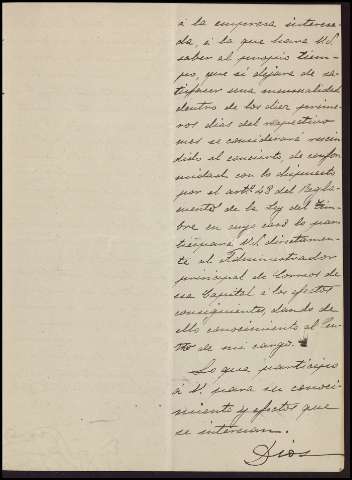 á la empresa interesa-
da, á la que hará V.S.
saber al propio tiem-
po, que si dejara de sa-
tisfacer una mensualidad
dentro de los diez prime-
ros dias del respectivo
mes se considerará rescin-
dido el concierto, de confor-
midad con lo dispuesto
por el artº 48 del Regla-
mento de la Ley del Tim-
bre en cuyo caso lo par-
ticipará V.S. directamen-
te al Administrador
principal de Correos de
esa Capital á los efectos
consiguientes, dando de
ello conocimiento al Cen-
tro de mi cargo.
Lo que participo
á V. para su conoci-
miento y efectos que
se interesan.
Dios